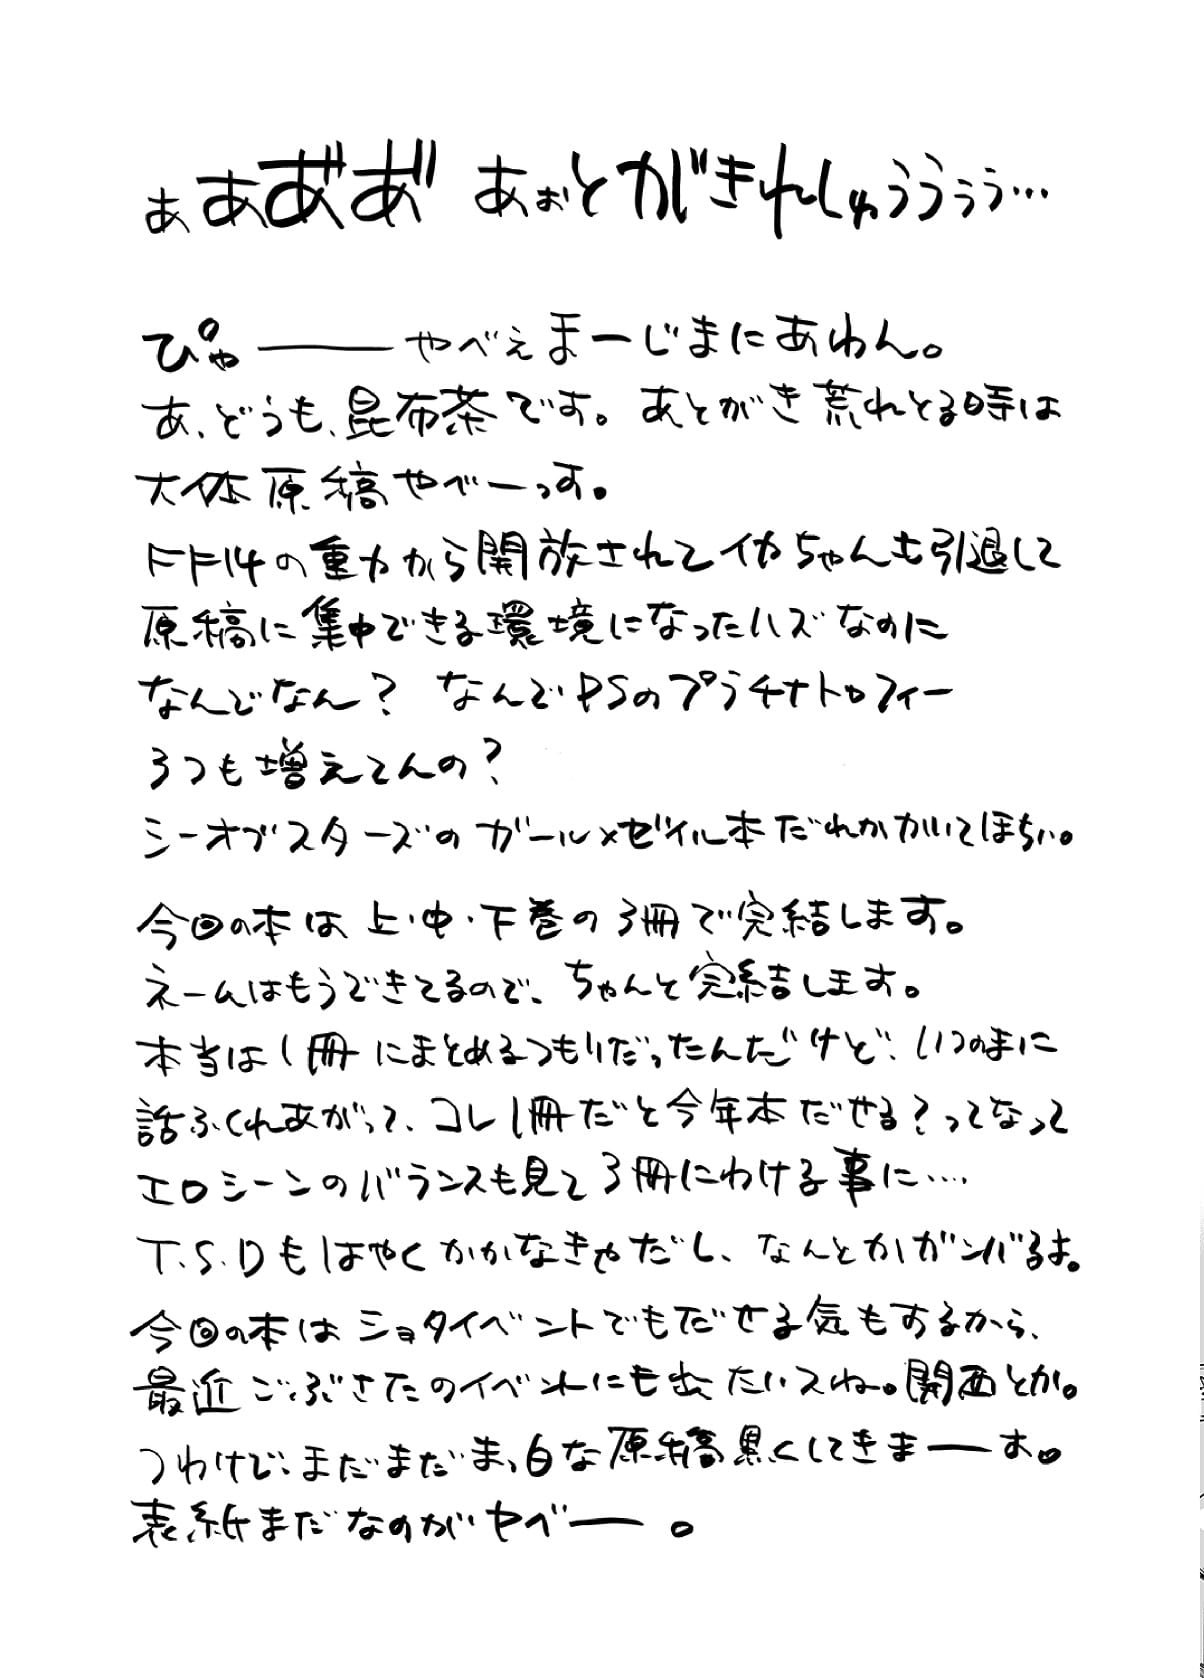 ぁああ゛あ゛ あぉとがきれしゅぅうぅぅ…
ぴゃ――― やべぇまーじまにあわん。
あ、どうも、昆布茶です。あとがき荒れとる時は
大体原稿やべーっす。
FF14の重力から開放されてイカちゃんも引退して
原稿に集中できる環境になったハズなのに
なんでなん？ なんでPSのプラチナトロフィー
3つも増えてんの？
シーオブスターズのガール×ゼイル本だれかかいてほちい。
今回の本は上・中・下巻の3冊で完結します。
ネームはもうできてるので、ちゃんと完結します。
本当は1冊にまとめるつもりだったんだけど、いつのまに
話ふくれあがって、コレ1冊だと今年本だせる？ってなって
エロシーンのバランスも見て3冊にわける事に…
T.S.Dもはやくかかなきゃだし、なんとかガンバるよ。
今回の本はショタイベントでもだせる気もするから、
最近ごぶさたのイベントにも出たいスね。関西とか。
つわけで、まだまだまっ白な原稿黒くしてきまーーす。
表紙まだなのがヤベー―。